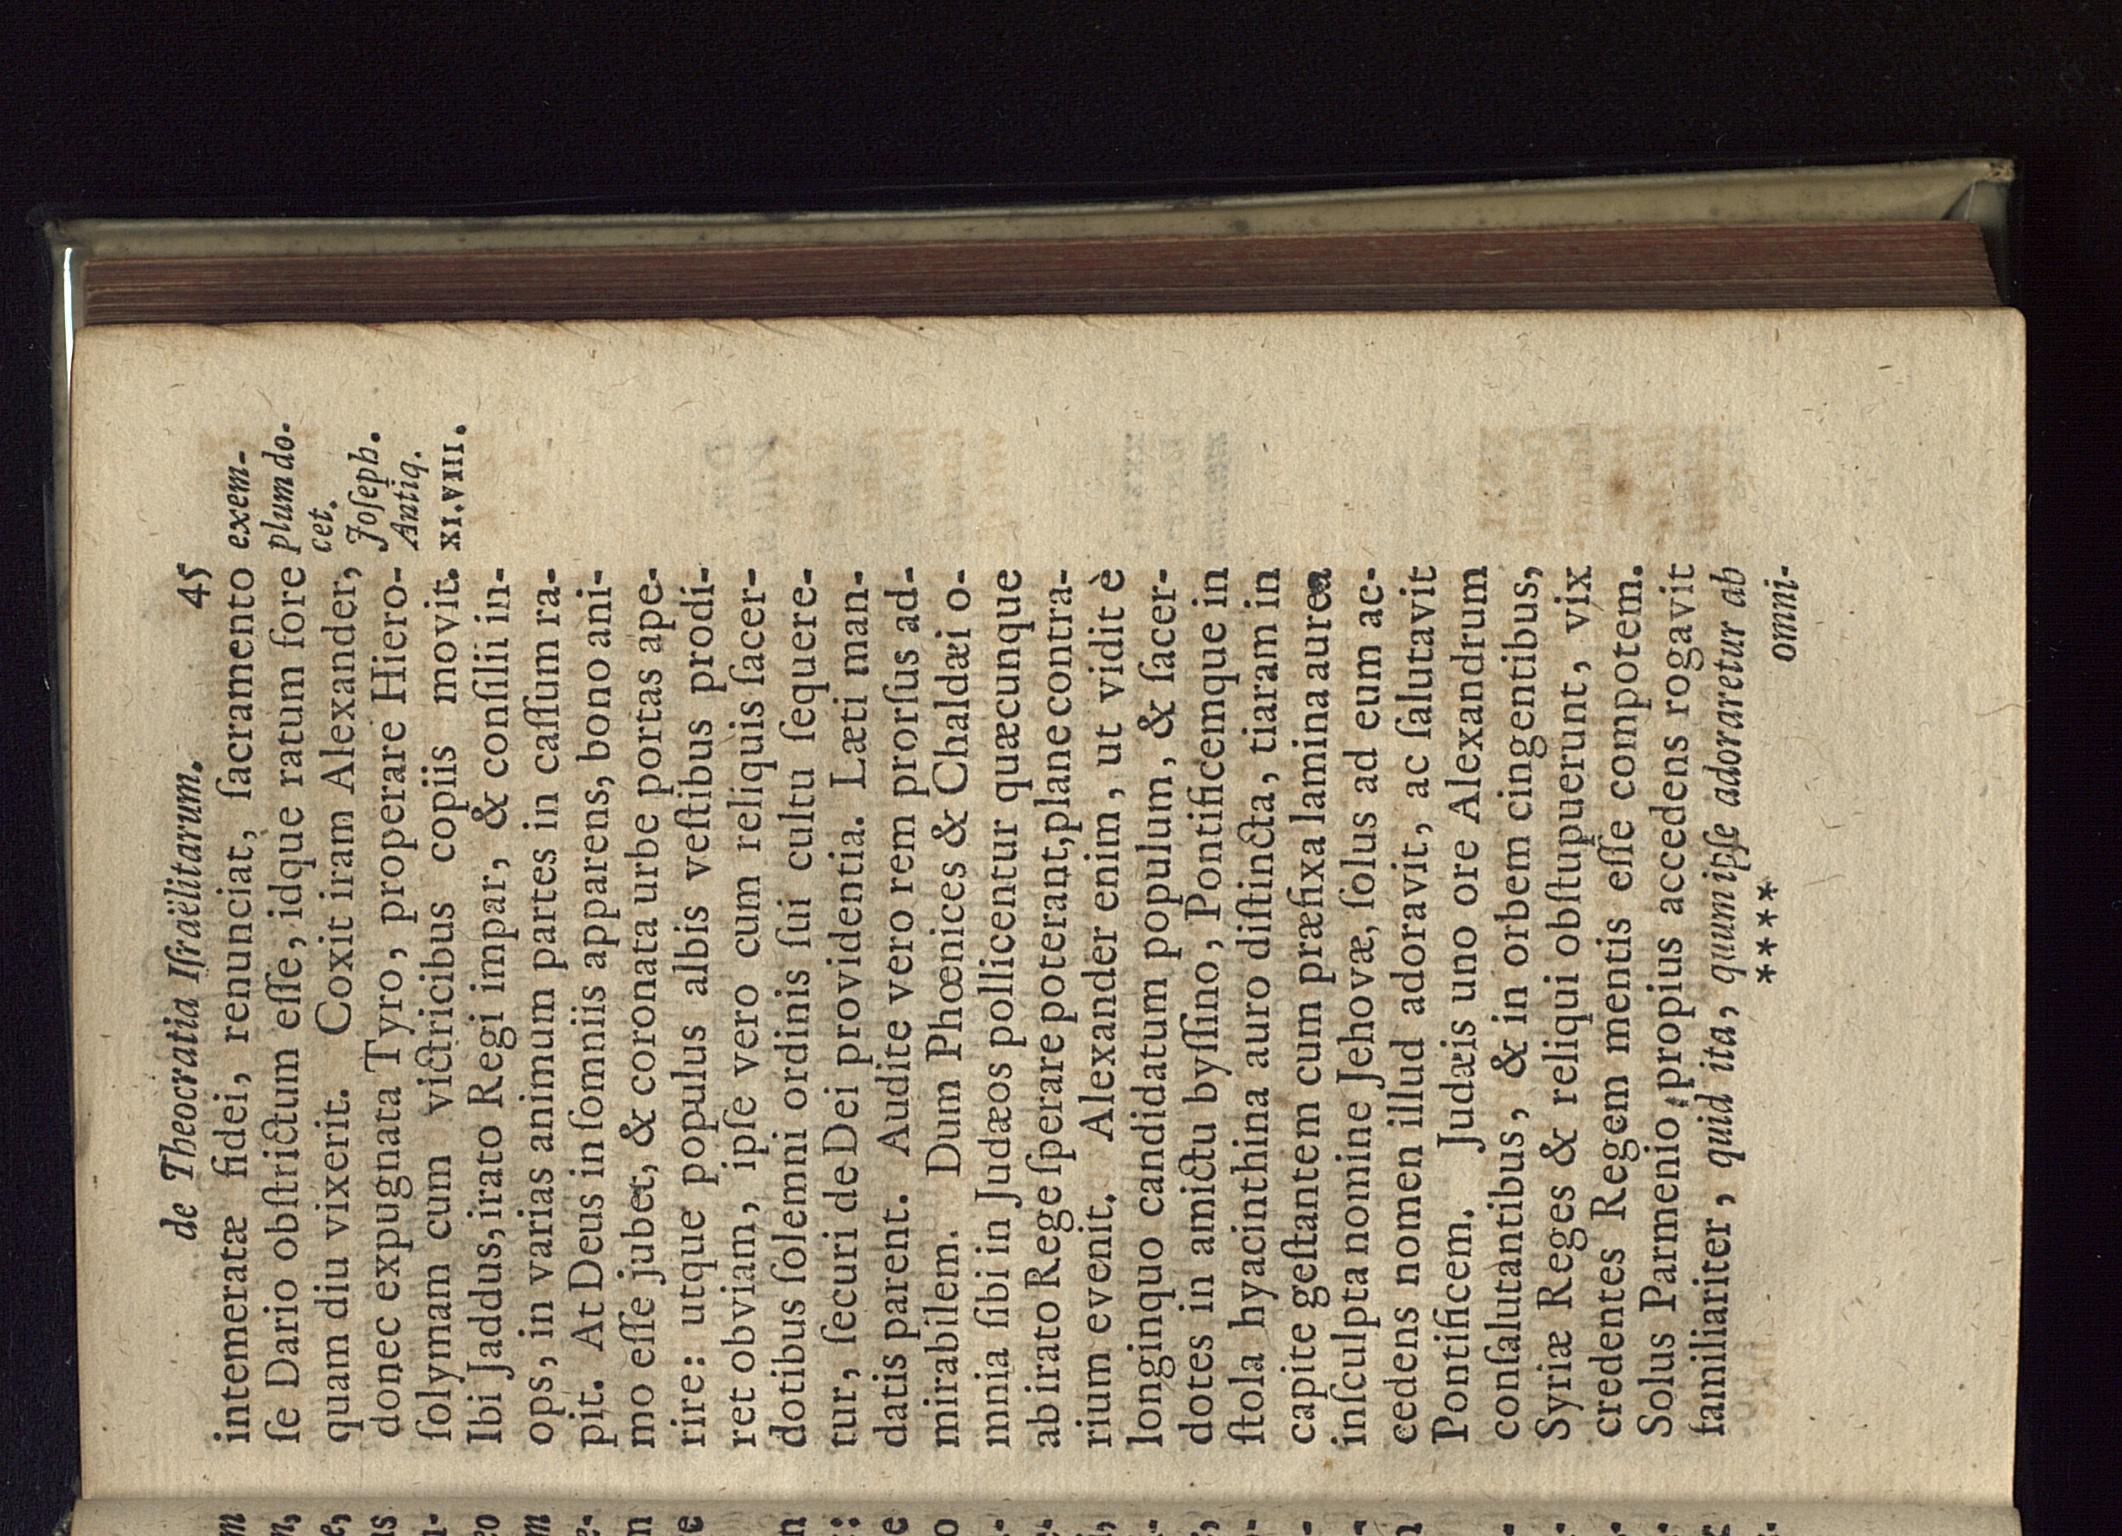 de Theocratia Iſraëlitarum. 45
intemeratæ fidei, renunciat, ſacramento
ſe Dario obſtrictum eſſe, idque ratum fore
quam diu vixerit. Coxit iram Alexander,
donec expugnata Tyro, properare Hiero-
ſolymam cum victricibus copiis movit.
Ibi Jaddus, irato Regi impar, & conſilii in-
ops, in varias animum partes in caſſum ra-
pit. At Deus in ſomniis apparens, bono ani-
mo eſſe jubet, & coronata urbe portas ape-
rire: utque populus albis veſtibus prodi-
ret obviam, ipſe vero cum reliquis ſacer-
dotibus ſolemni ordinis ſui cultu ſequere-
tur, ſecuri de Dei providentia. Læti man-
datis parent. Audite vero rem prorſus ad-
mirabilem. Dum Phœnices & Chaldæi o-
mnia ſibi in Judæos pollicentur quæcunque
ab irato Rege ſperare poterant, plane contra-
rium evenit. Alexander enim, ut vidit è
longinquo candidatum populum, & ſacer-
dotes in amictu byſſino, Pontificemque in
ſtola hyacinthina auro diſtincta, tiaram in
capite geſtantem cum præfixa lamina aurea
inſculpta nomine Jehovæ, ſolus ad eum ac-
cedens nomen illud adoravit, ac ſalutavit
Pontificem. Judæis uno ore Alexandrum
conſalutantibus, & in orbem cingentibus,
Syriæ Reges & reliqui obſtupuerunt, vix
credentes Regem mentis eſſe compotem.
Solus Parmenio, propius accedens rogavit
familiariter, quid ita, quum ipſe adoraretur ab
**** omni-
exem-
plum do-
cet.
Joſeph.
Antiq.
XI.VIII.